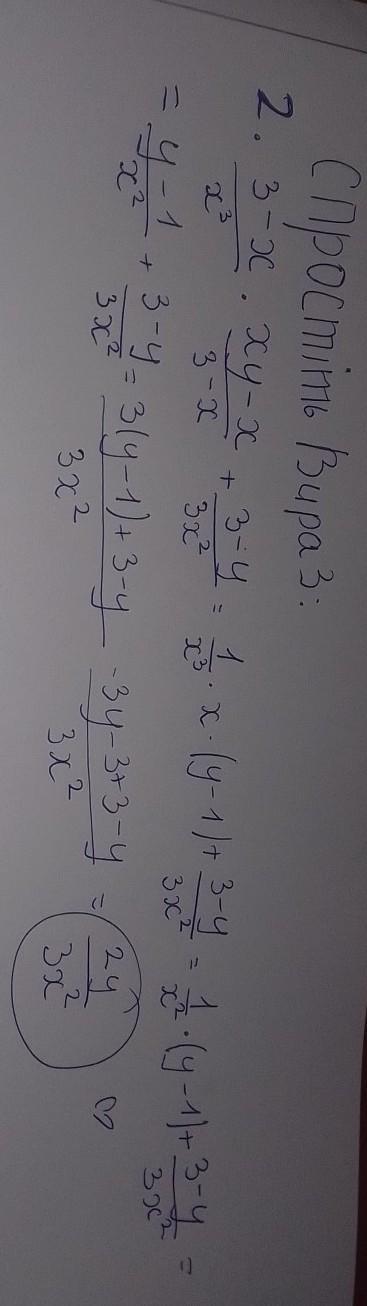 Спростіть вираз:
2. \frac{3-x}{x^3} \cdot \frac{xy-x}{3-x} + \frac{3-y}{3x^2} = \frac{1}{x^3} \cdot x \cdot (y-1) + \frac{3-y}{3x^2} = \frac{1}{x^2} \cdot (y-1) + \frac{3-y}{3x^2} =
= \frac{y-1}{x^2} + \frac{3-y}{3x^2} = \frac{3(y-1)+3-y}{3x^2} - \frac{3y-3+3-y}{3x^2} = \frac{2y}{3x^2}